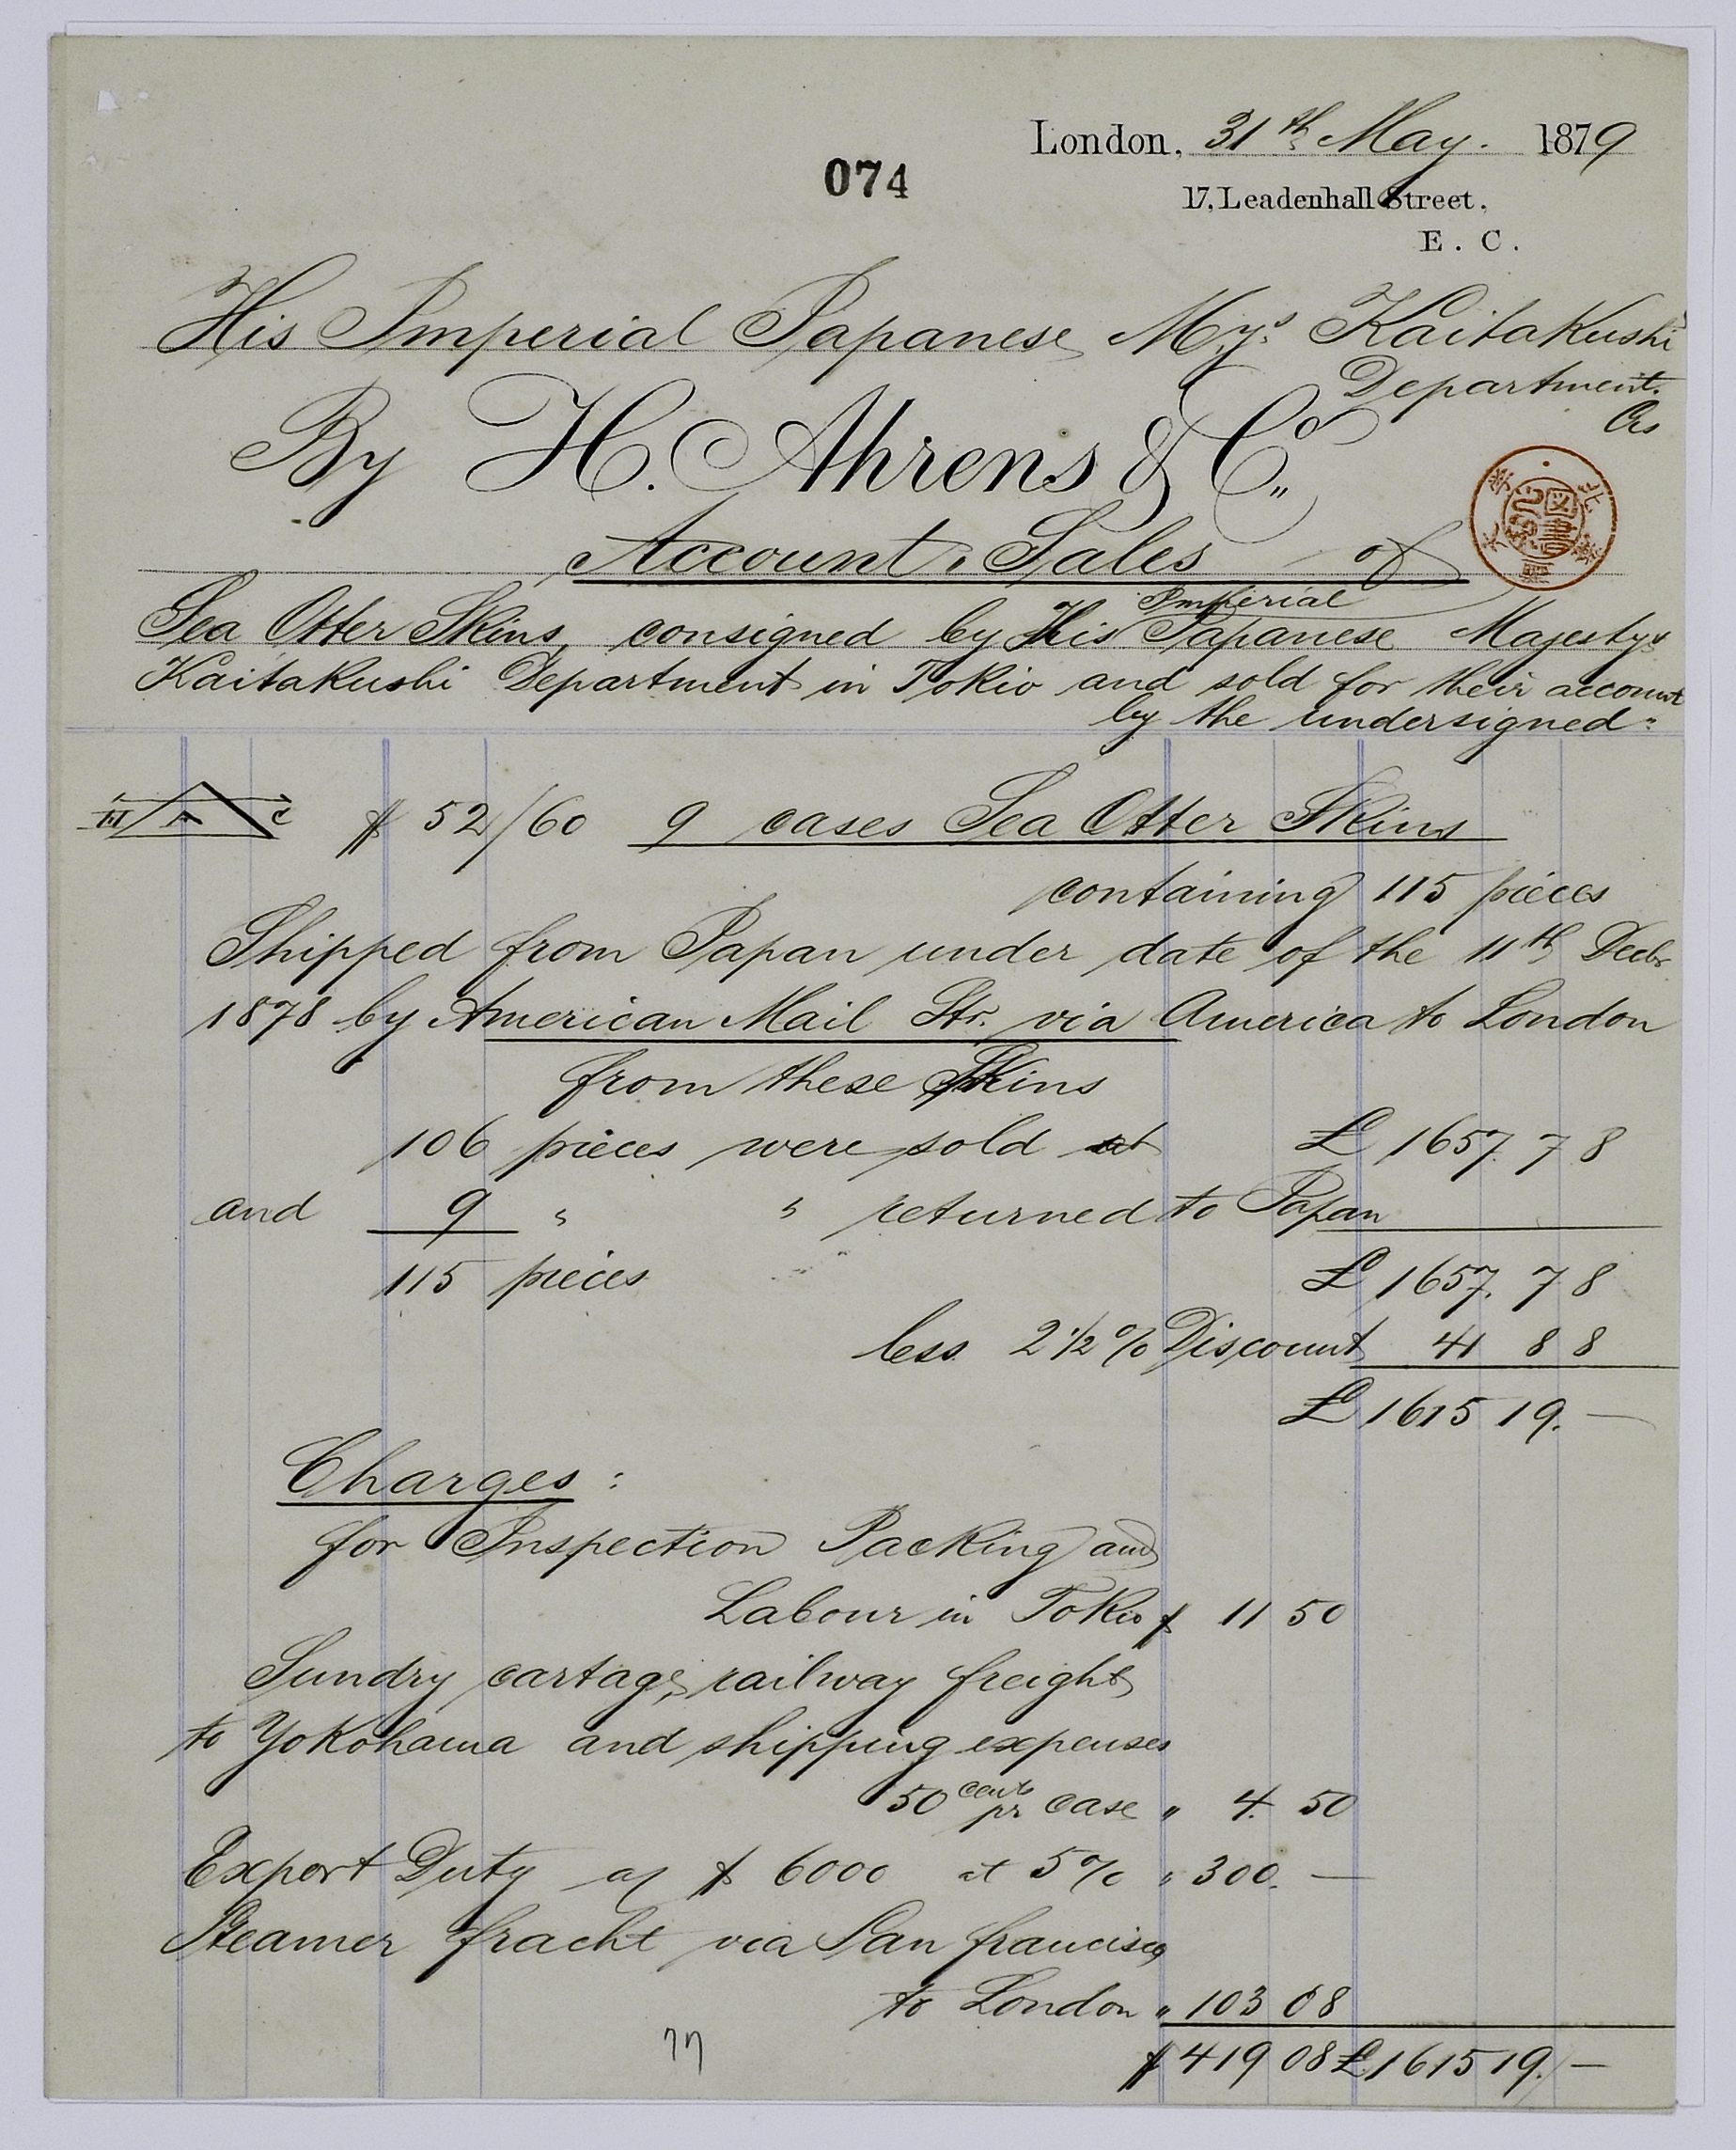 London, 31th May. 1879
074
17, Leadenhall Street,
E. C.
His Imperial Japanese My's Kaitakushi
Department.
By H. Ahrens & Co.
Account Sales of
Imperial
Sea Otter Skins, consigned by His Japanese Majestys
Kaitakushi Department in Tokio and sold for their account
by the undersigned
H A C # 52/60 9 cases Sea Otter Skins
containing 115 pieces
Shipped from Japan under date of the 11th Decbr
1878 by American Mail Str. via America to London
from these Skins
106 pieces were sold at £ 1657. 7 8
and 9 " " returned to Japan
115 pieces £ 1657. 7 8
less 2 1/2 % Discount 41 8 8
£ 1615 19. —
Charges :
for Inspection Packing and
Labour in Tokio $ 11 50
Sundry cartage, railway freight
to Yokohama and shipping expenses
50 cents pr case " 4. 50
Export Duty of $ 6000 at 5% " 300. —
Steamer fracht via San francisco
to London " 103 08
$ 419 08 £ 1615 19. —
77